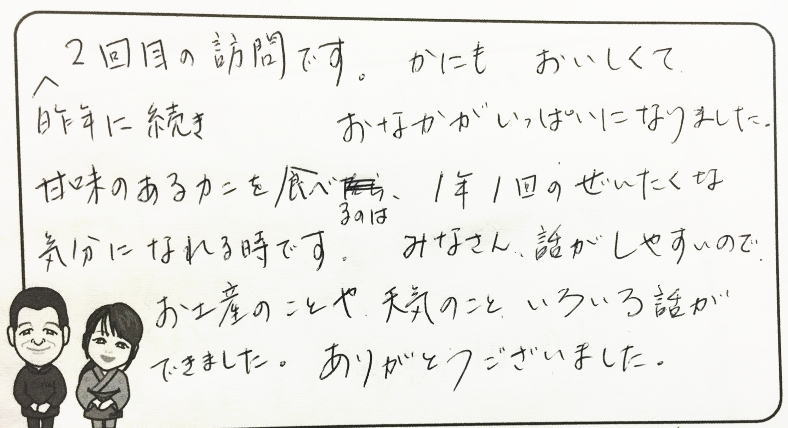 2回目の訪問です。かにも おいしくて
昨年に続き おなかがいっぱいになりました。
甘味のあるカニを食べるのは、1年1回のぜいたくな
気分になれる時です。 みなさん、話がしやすいので、
お土産のことや、天気のこと、いろいろ話が
できました。ありがとうございました。